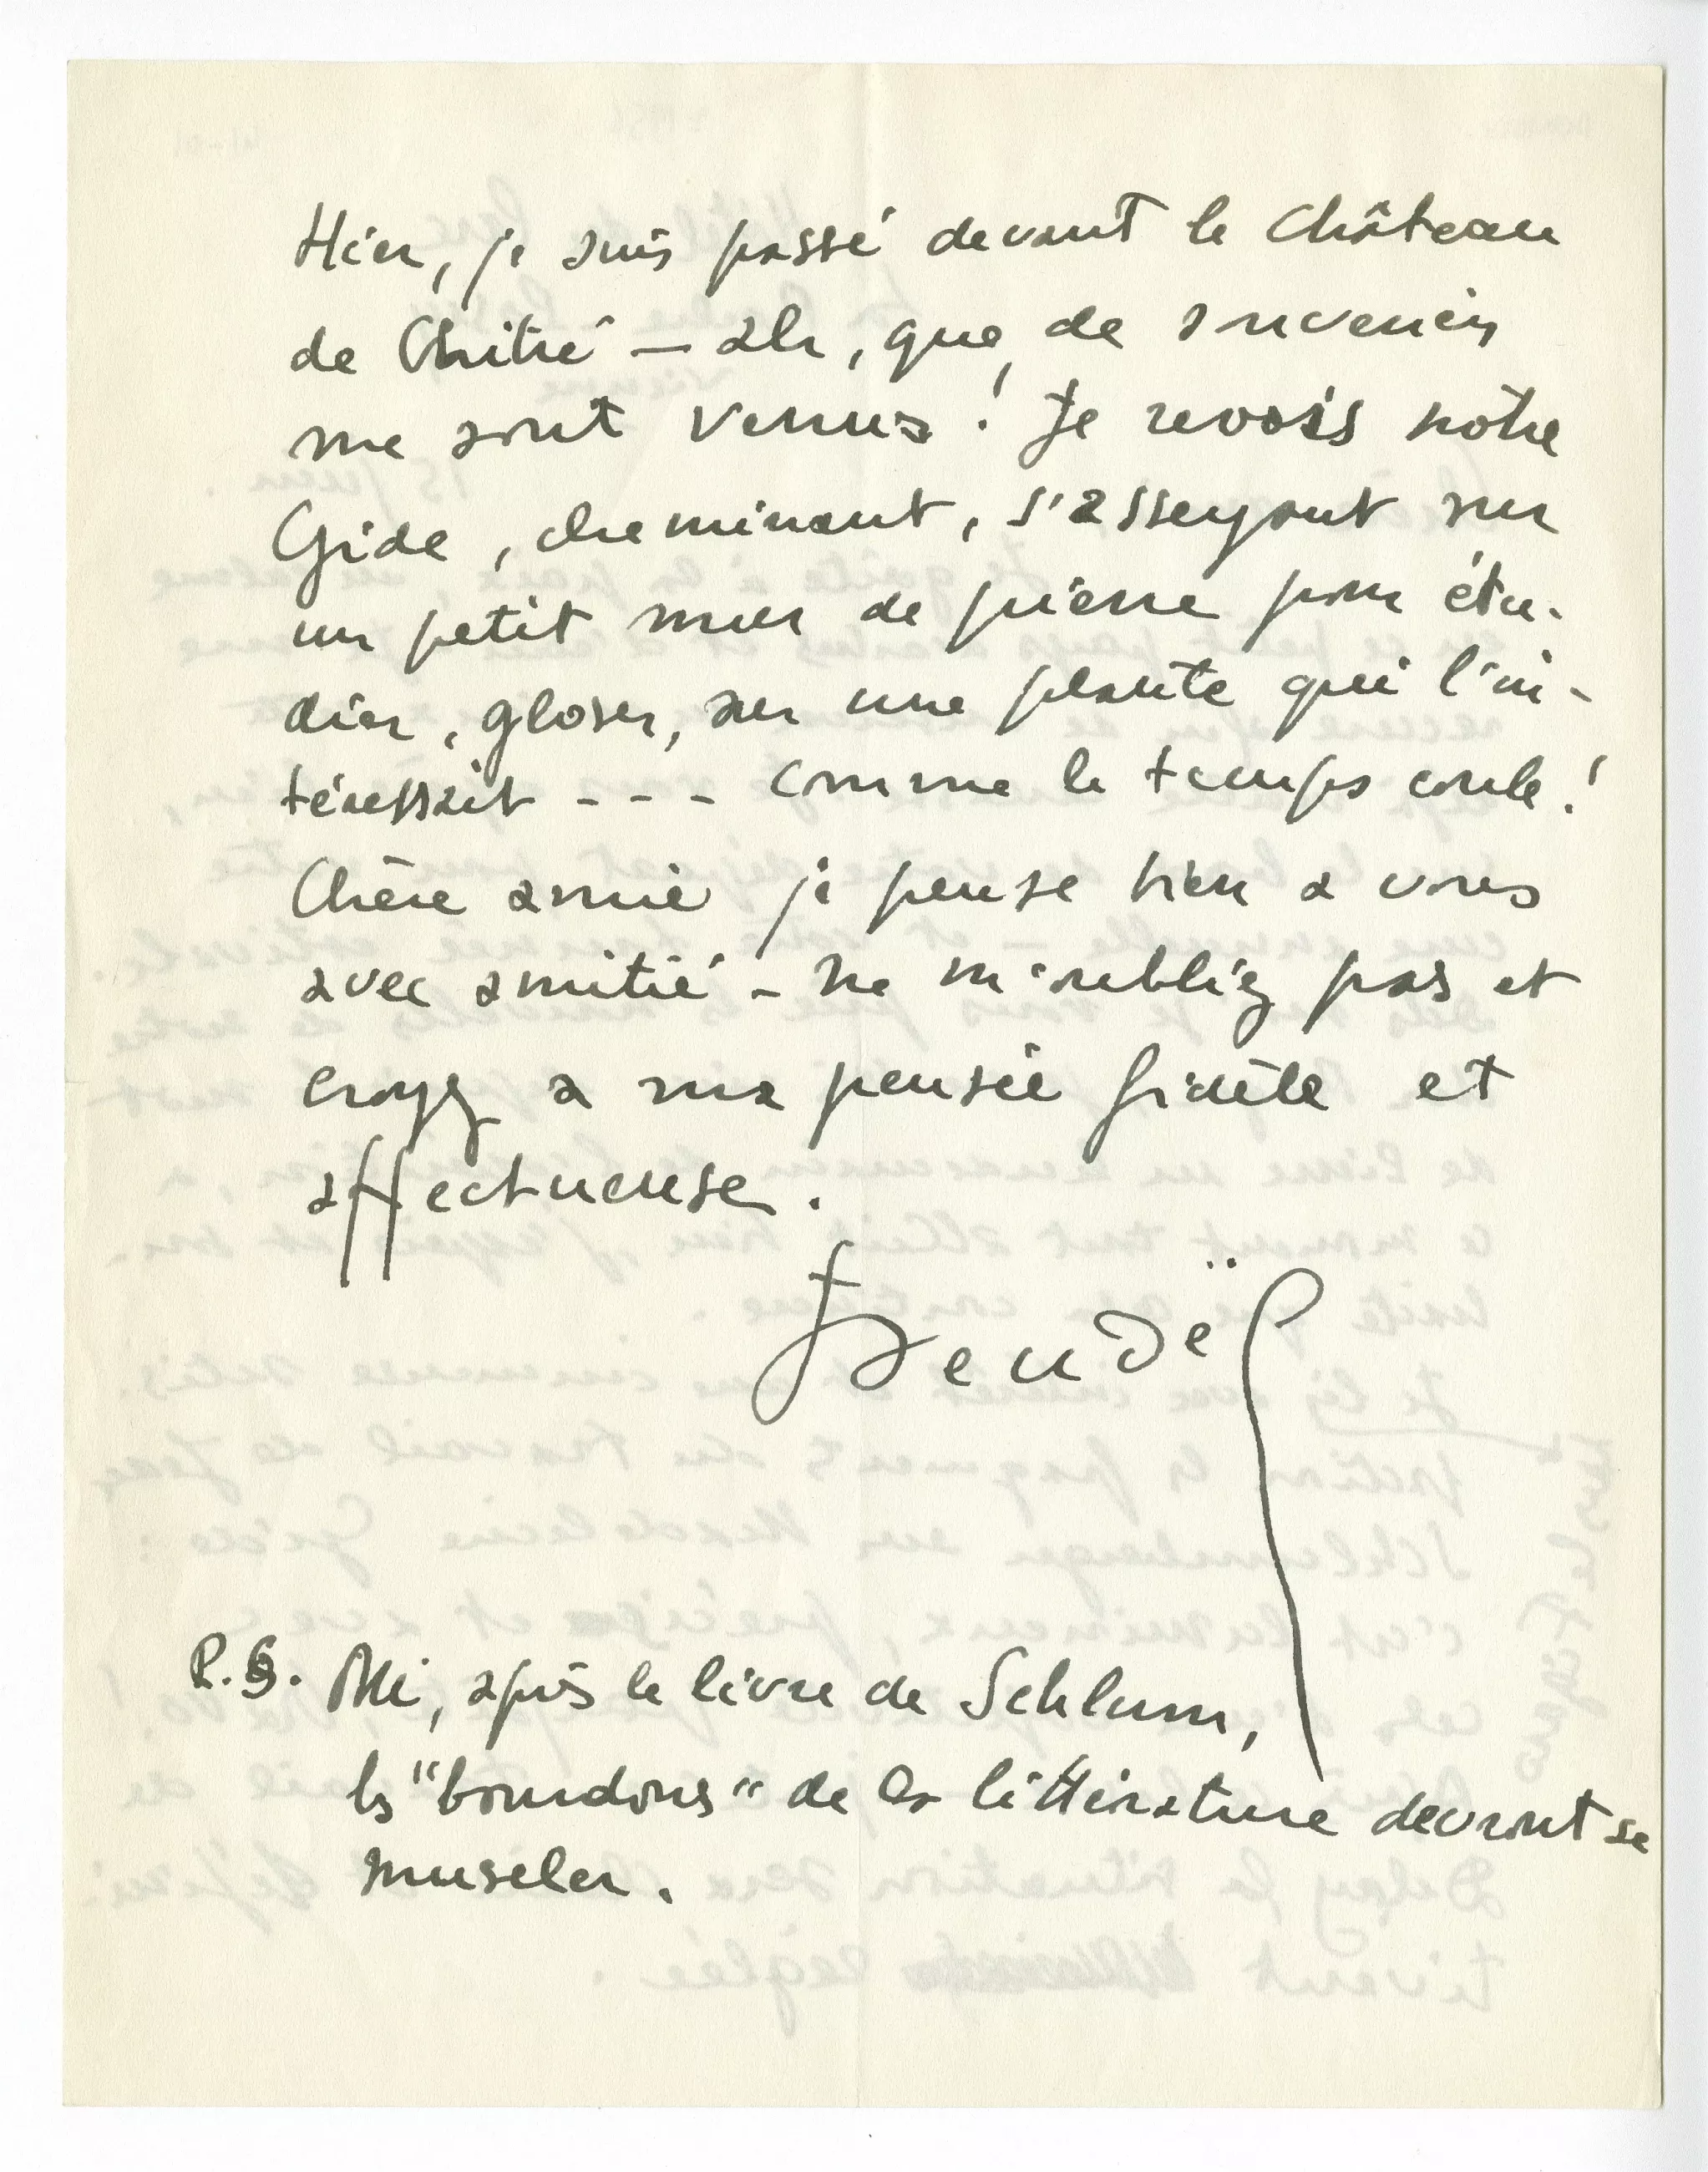 Hier, je suis passé devant le Château
de Chitré — ah, que de souvenirs
me sont venus! Je revois notre
Gide, cheminant, s'asseyant sur
un petit mur de pierre pour étu-
dier, gloser, sur une plante qui l'in-
téressait - - - comme le temps coule!
Chère amie je pense bien à vous
avec amitié - ne m'oubliez pas et
croyez à ma pensée fidèle et
affectueuse.
P.S. après le livre de Schlum,
les "bourdons" de la littérature devront se
museler.